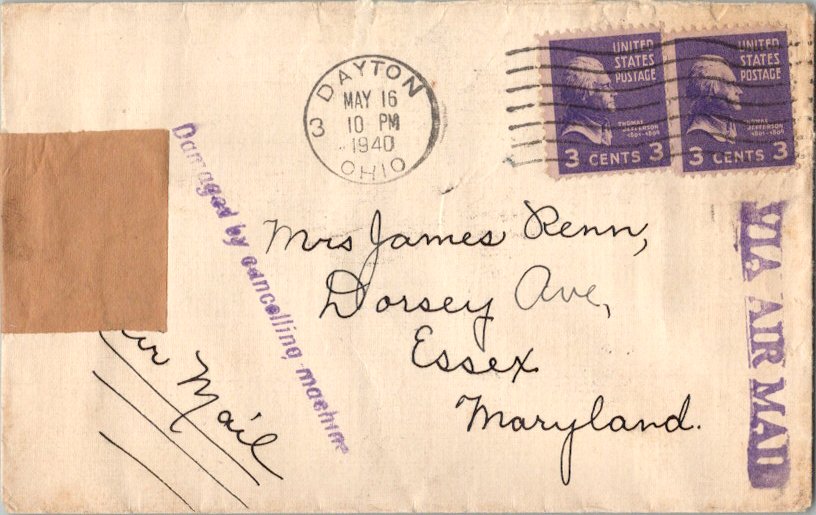 DAYTON
MAY 16
10 PM
1940
OHIO
3
UNITED
STATES
POSTAGE
THOMAS
JEFFERSON
1801-1809
3 CENTS 3
UNITED
STATES
POSTAGE
THOMAS
JEFFERSON
1801-1809
3 CENTS 3
Damaged by cancelling machine
VIA AIR MAIL
Mrs James Renn,
Dorsey Ave,
Essex
Maryland.
Mail